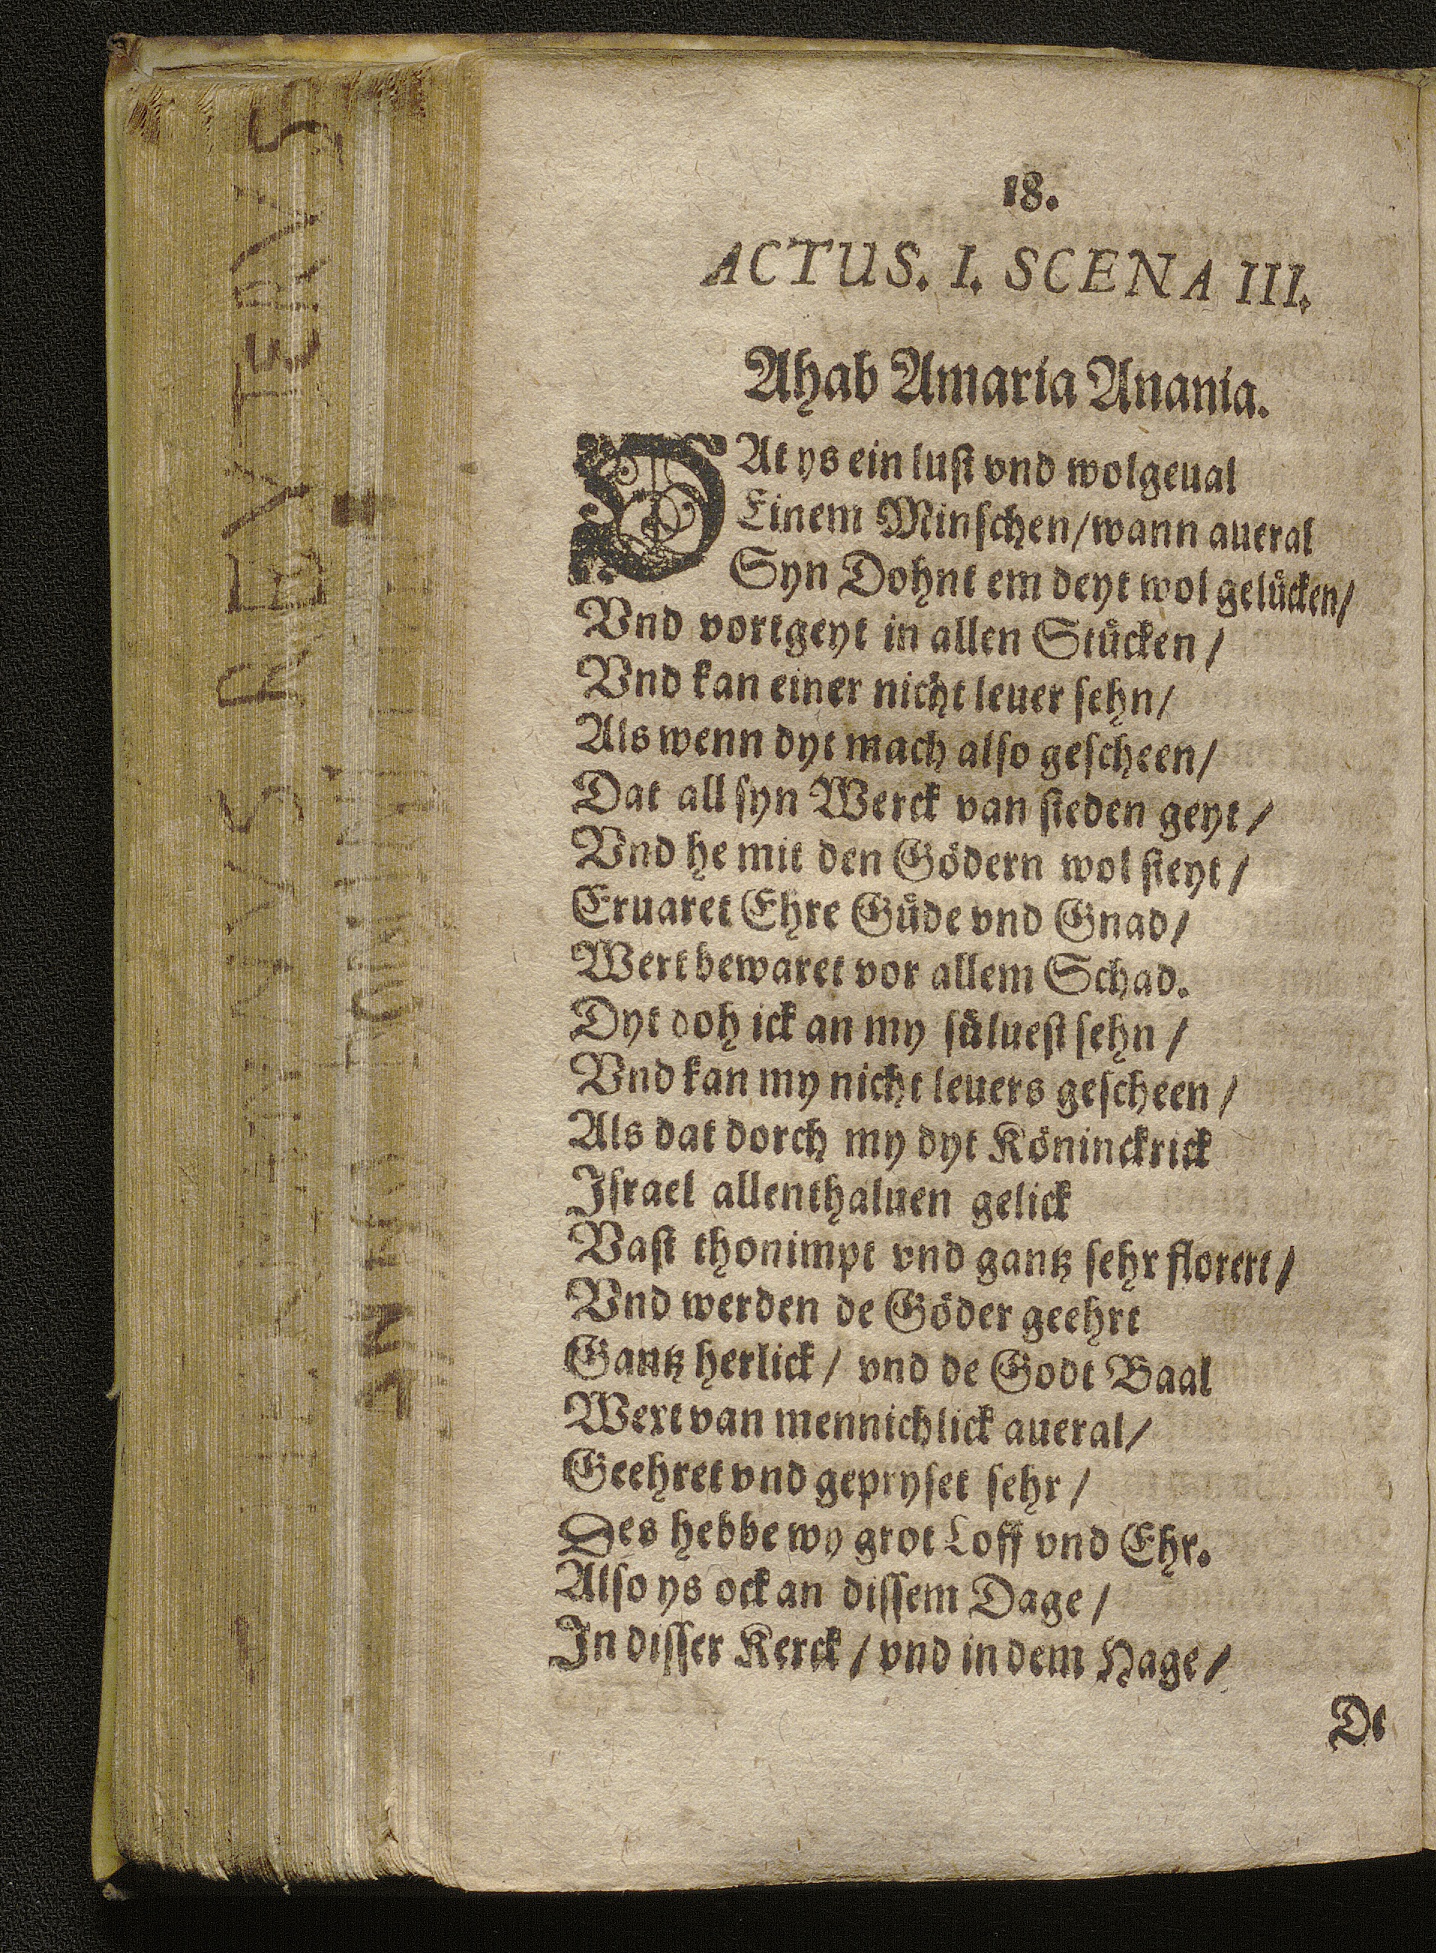 18.
ACTUS. I. SCENA III.
Ahab Amaria Anania.
DAt ys ein lust vnd wolgeual
Einem Minschen/wann aueral
Syn Dohnt em deyt wol gelücken/
Vnd vortgeyt in allen Stücken/
Vnd kan einer nicht leuer sehn/
Als wenn dyt mach also gescheen/
Dat all syn Werck van steden geyt/
Vnd he mit den Gödern wol steyt/
Eruaret Ehre Güde vnd Gnad/
Wert bewaret vor allem Schad.
Dyt doh ick an my süluest sehn/
Vnd kan my nicht leuers gescheen/
Als dat dorch my dyt Köninckrick
Israel allenthaluen gelick
Vast thonimpt vnd gantz sehr florert/
Vnd werden de Göder geehrt
Gantz herlick/ vnd de Godt Baal
Wert van mennichlick aueral/
Geehret vnd gepryset sehr/
Des hebbe wy grot Loff vnd Ehr.
Also ys ock an dissem Dage/
In disser Kerck/ vnd in dem Hage/
De
REVTERVS